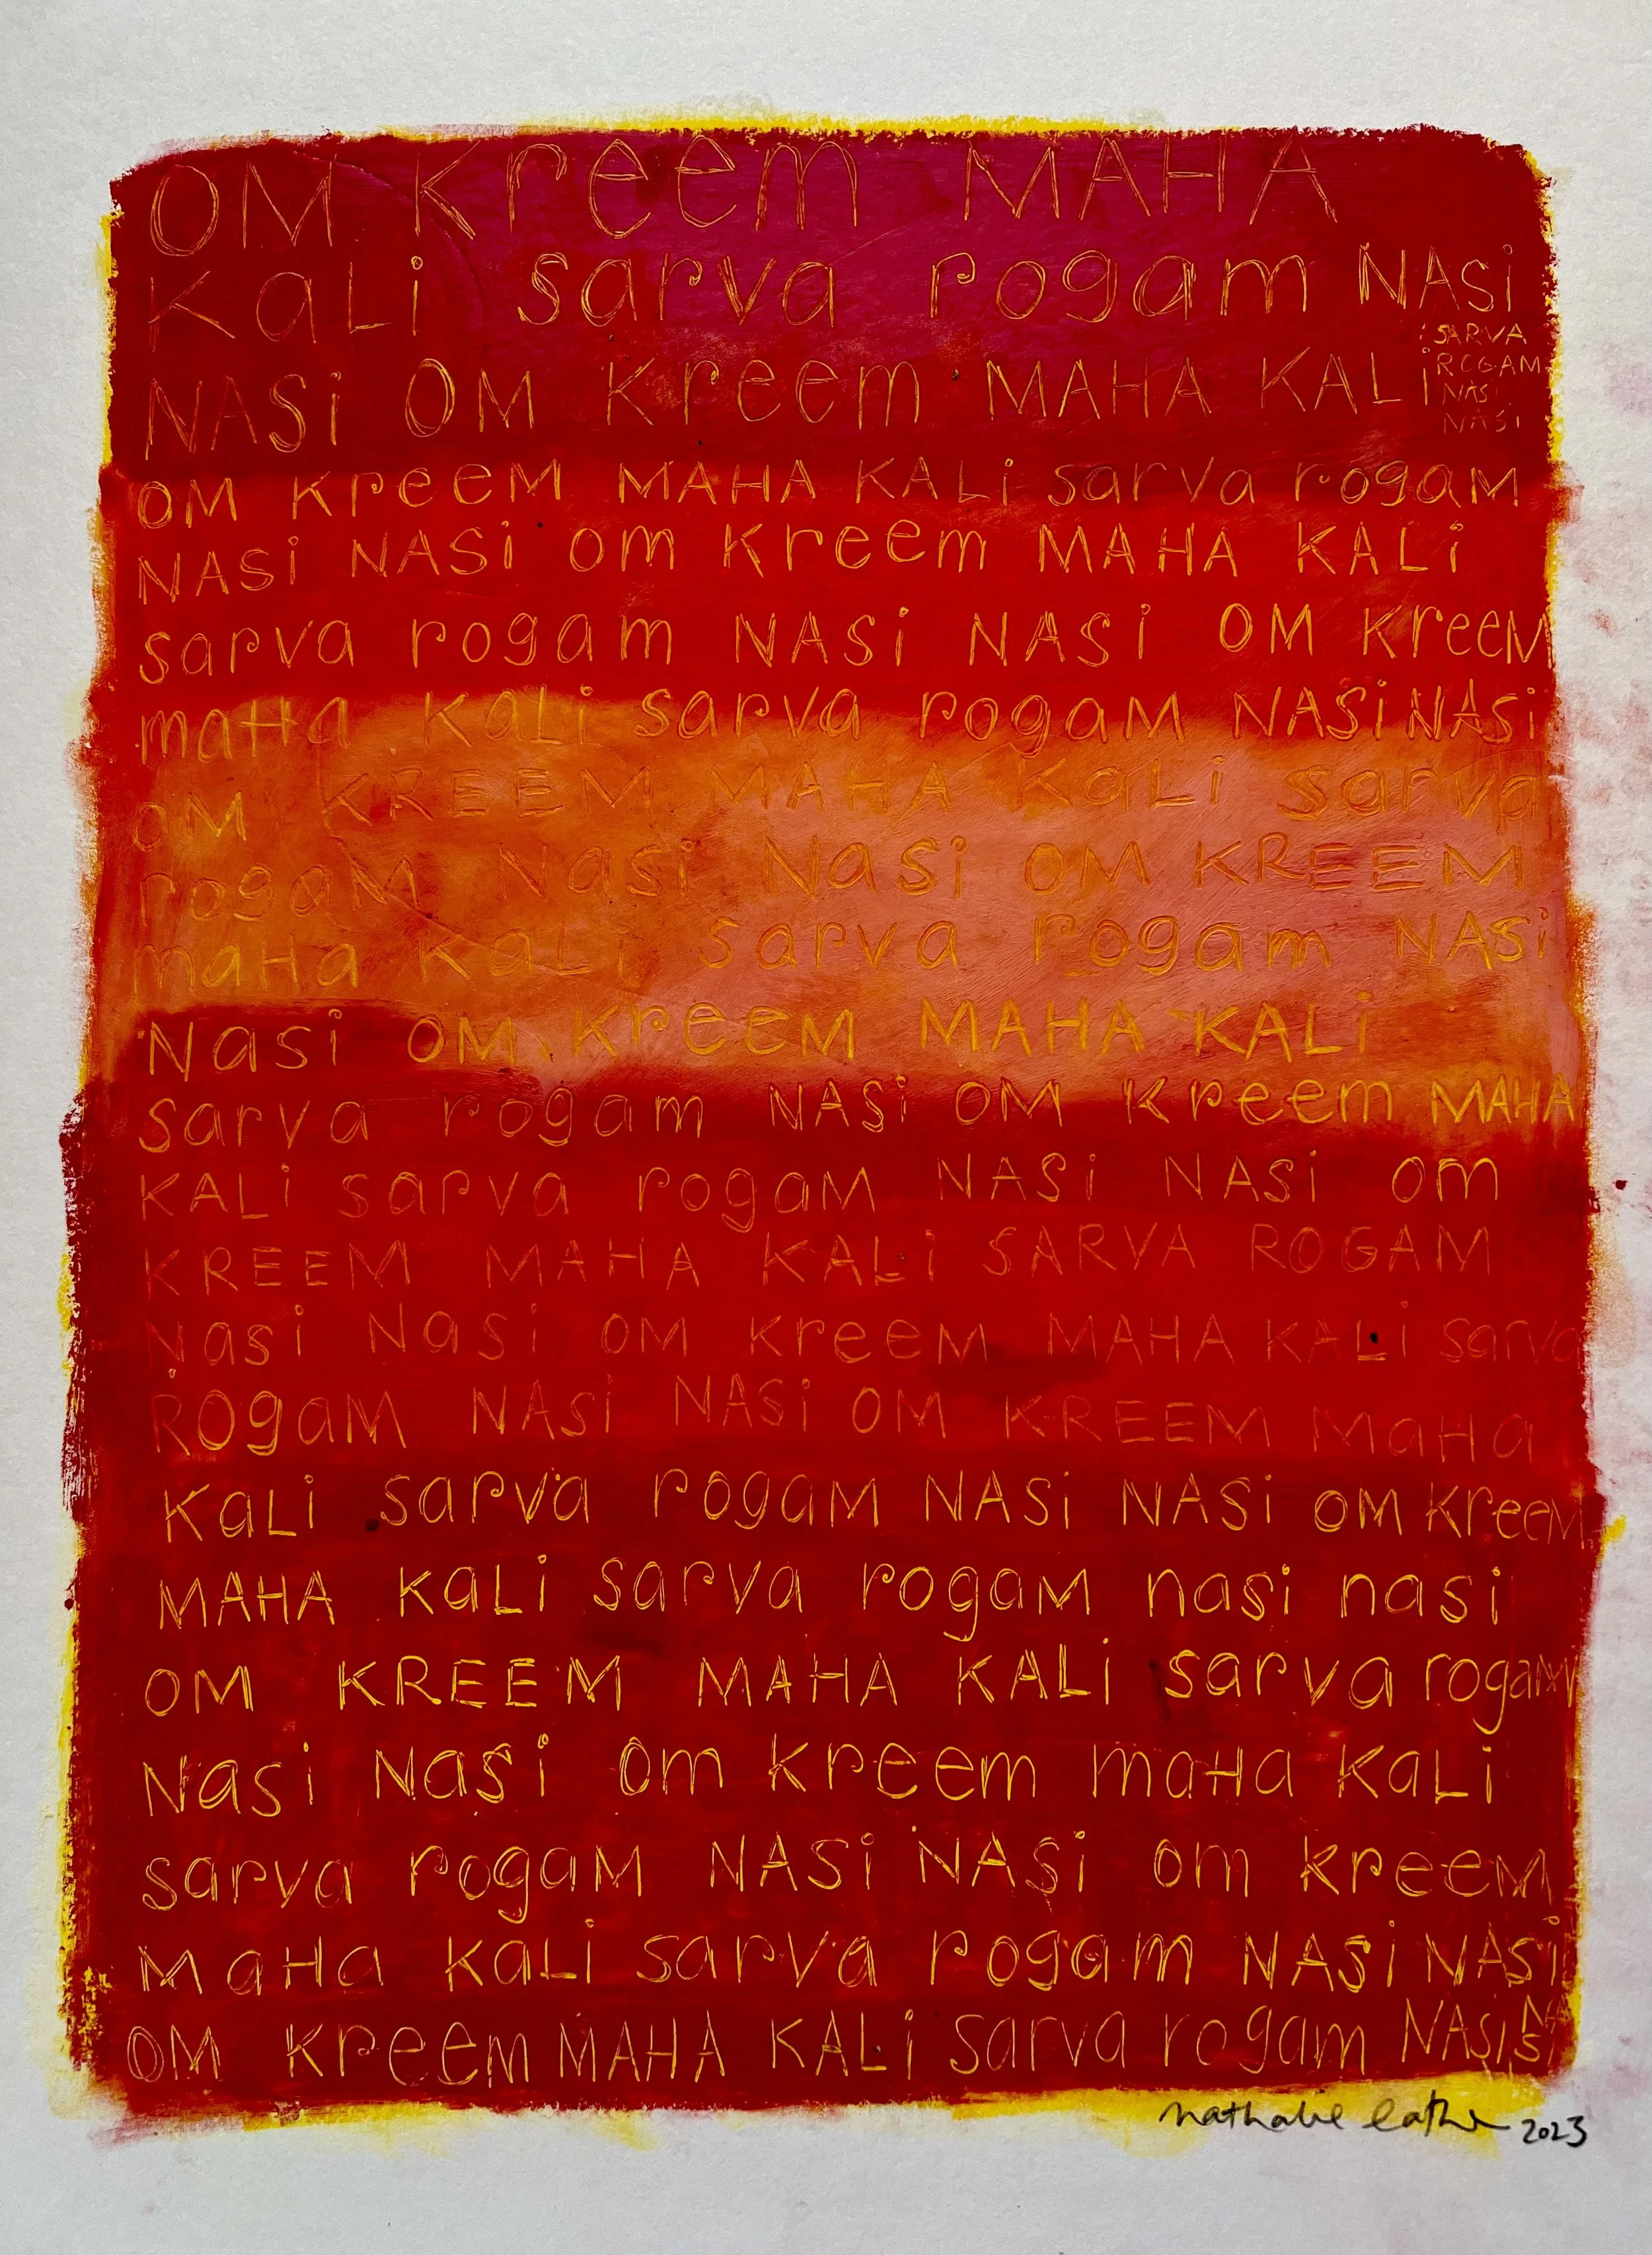 OM Kreem MAHA
KaLi sarva rogam NASi
NASi OM Kreem MAHA KALi
SARVA
ROGAM
NASi
NASi
OM Kreem MAHA KALi sarva rogaM
NASi NASi om Kreem MAHA KALi
sarva rogam NASi NASi OM KreeM
maHa KaLi sarva rogaM NASi NASi
OM KREEM MAHA KaLi sarva
rogaM Nasi Nasi OM KREEM
maHa KaLi sarva rogam NASi
Nasi OM KreeM MAHA KALi
sarva rogam NASi OM Kreem MAHA
KALi sarva rogaM NASi NASi om
KREEM MAHA KALi SARVA ROGAM
Nasi Nasi OM KreeM MAHA KALi sarva
ROgaM NASi NASi OM KREEM MaHa
KaLi sarva rogaM NASi NASi OM KreeM
MAHA KaLi sarva rogaM nasi nasi
OM KREEM MAHA KALi sarva rogam
Nasi Nasi Om Kreem maHa KaLi
sarva rogaM NASi NASi om kreeM
MaHa KaLi sarva rogam NASi NASi
OM Kreem MAHA KALi sarva rogam NASi NASi
nathalie 2023